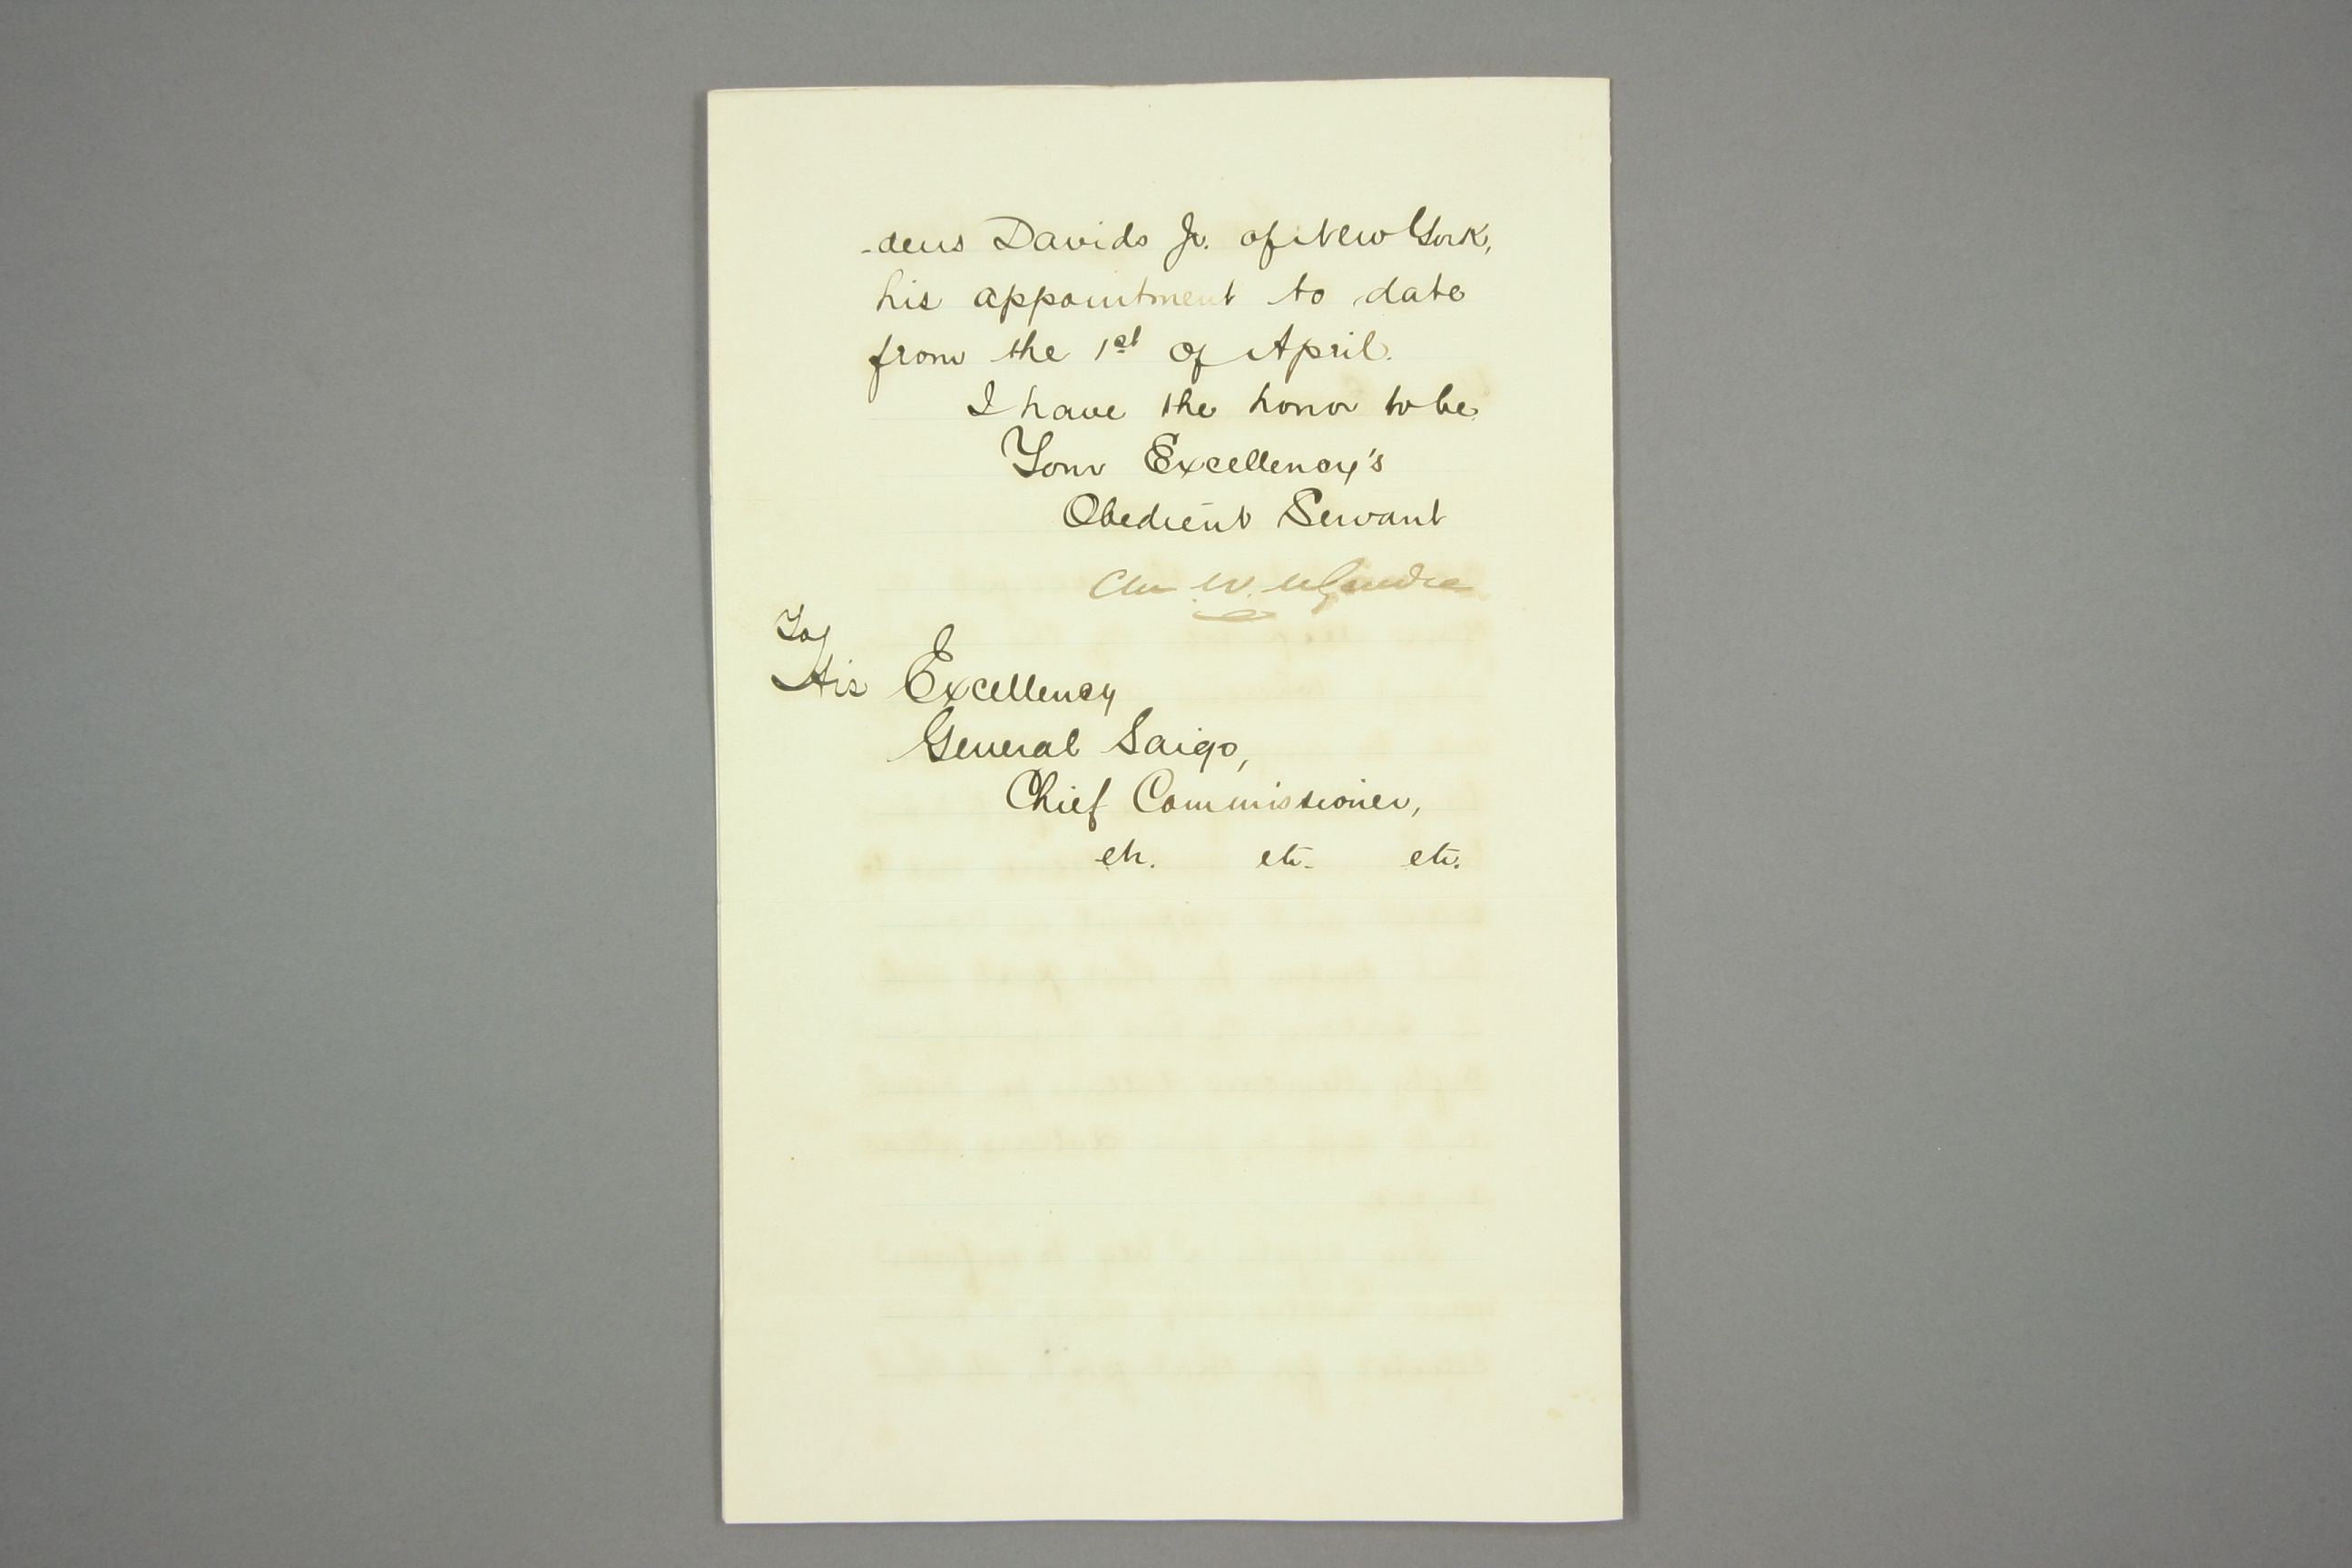 -deus Davids Jr. of New York,
his appointment to date
from the 1st of April.
I have the honor to be
Your Excellency's
Obedient Servant
Cha W. LeGendre
To/
His Excellency
General Saigo,
Chief Commissioner,
etc. etc. etc.